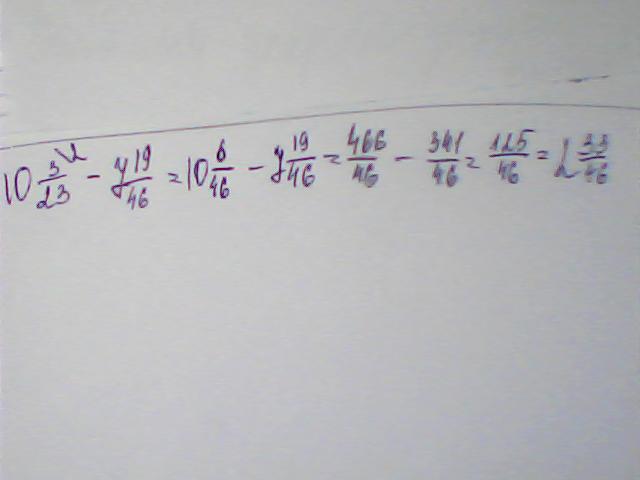 10 3/23 \2 - 7 19/46 = 10 6/46 - 7 19/46 = 466/46 - 341/46 = 125/46 = 2 33/46